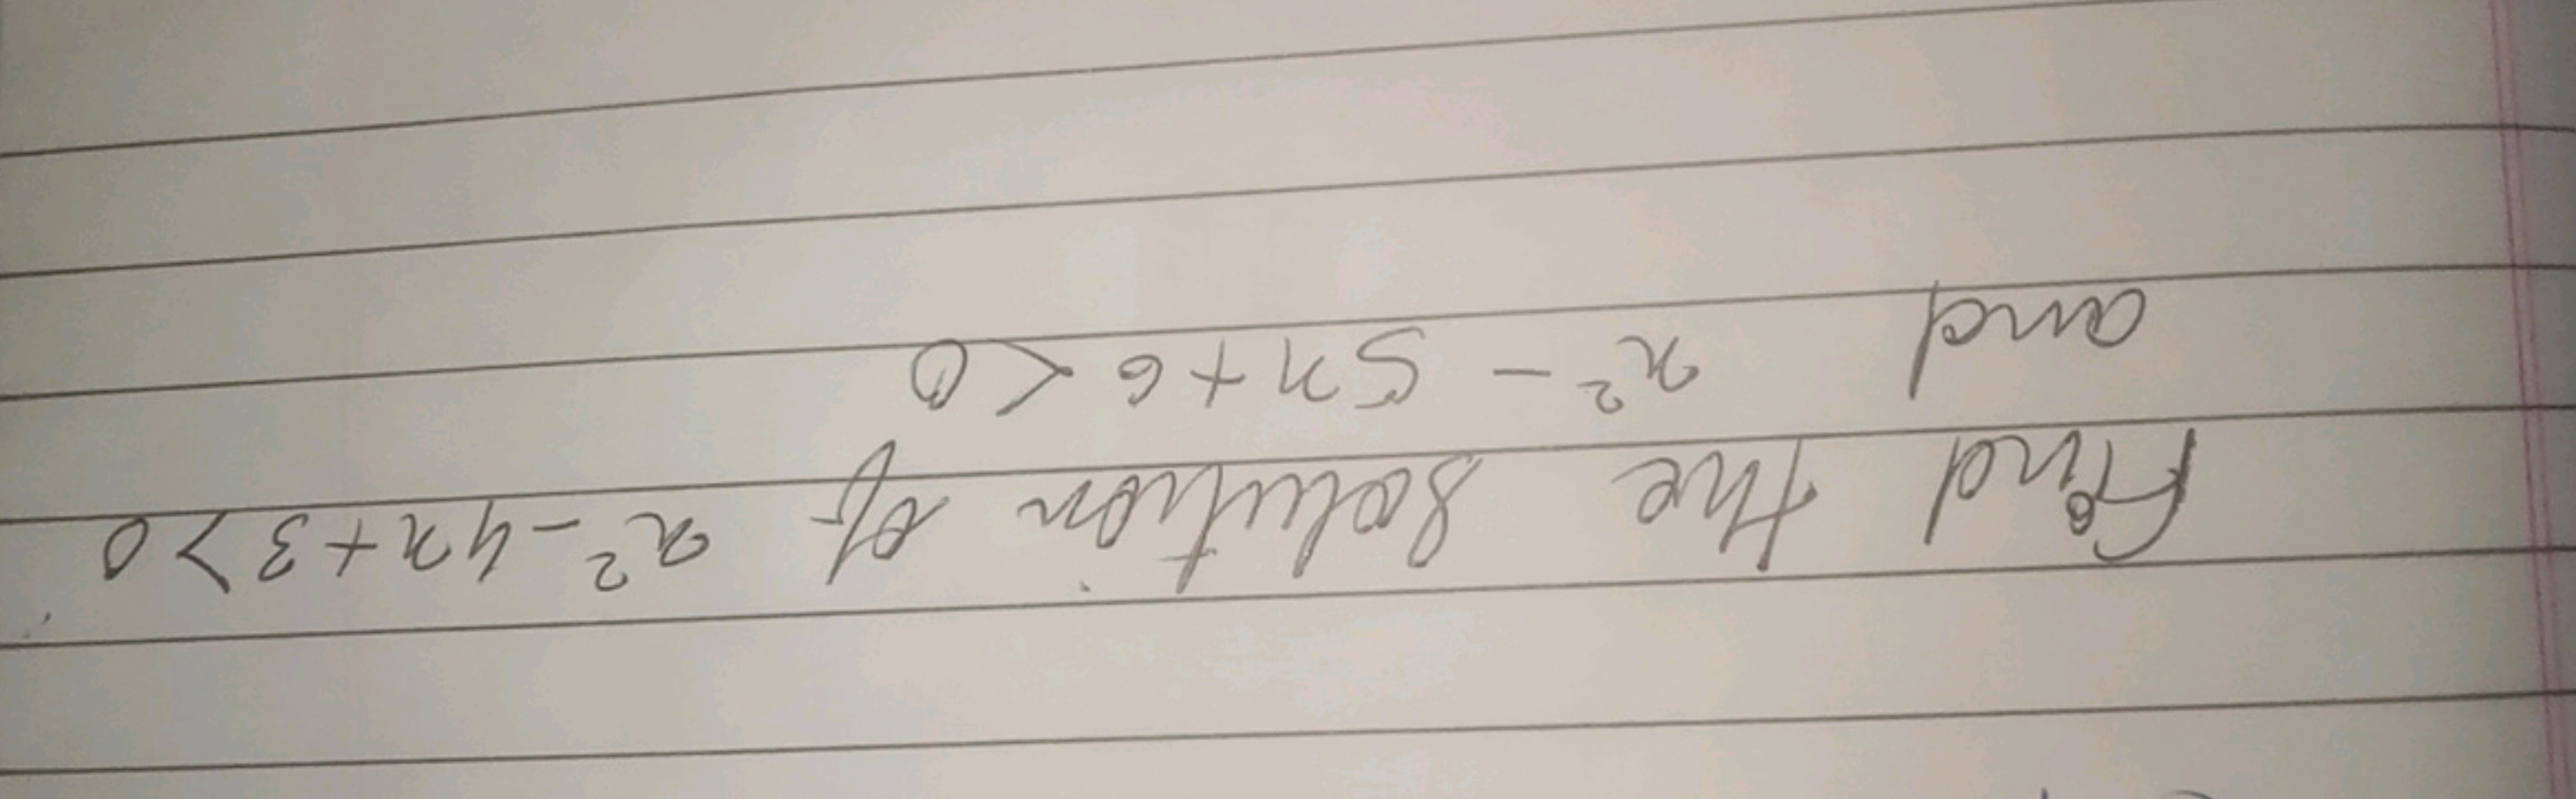 Find the solution of x² - 4x + 3 > 0
and x² - 5x + 6 < 0